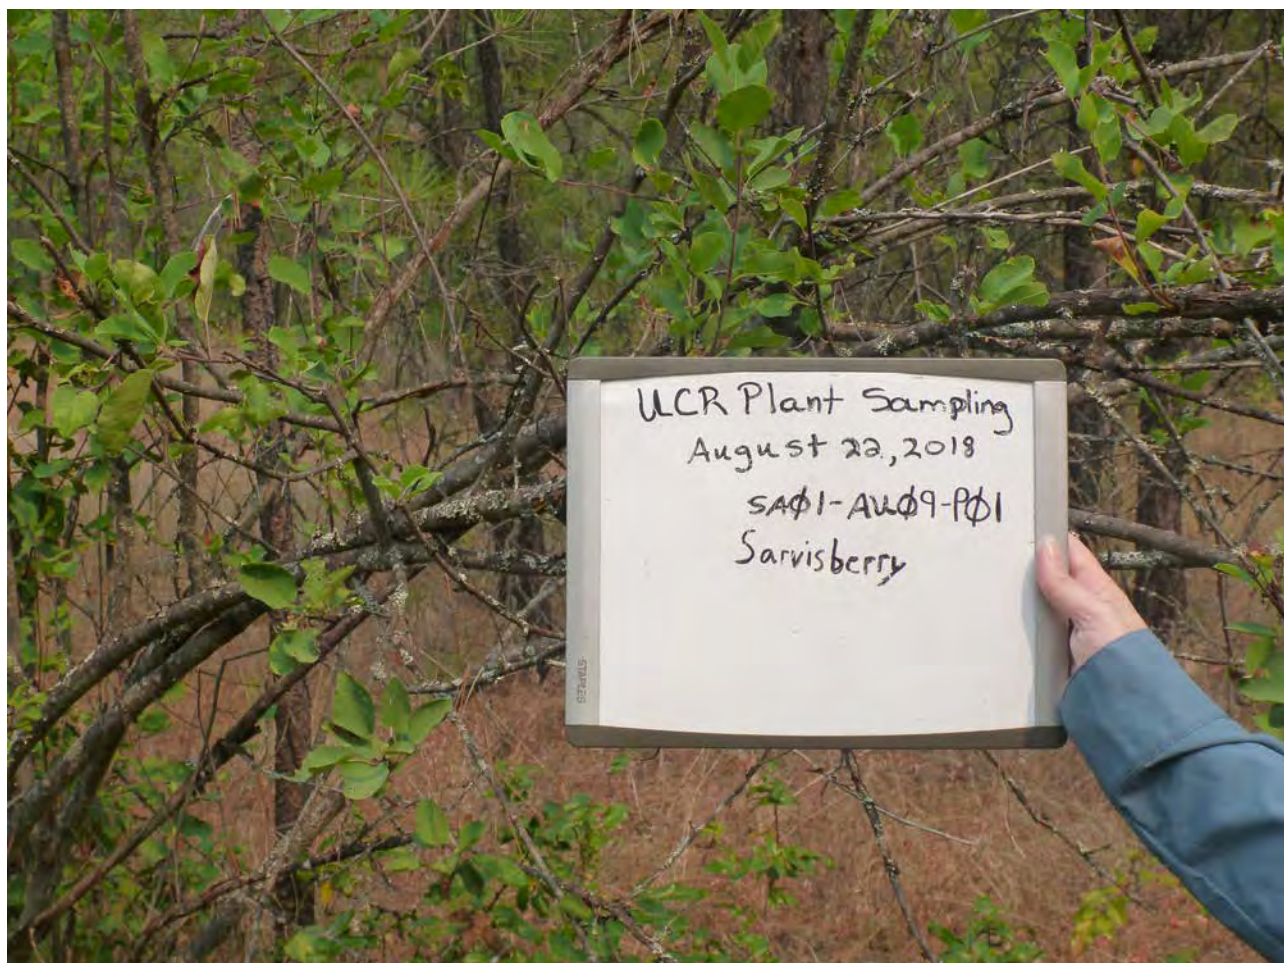 UCR Plant Sampling
August 22, 2018
SAØ1-AUØ9-PØ1
Sarvisberry
STAPLES